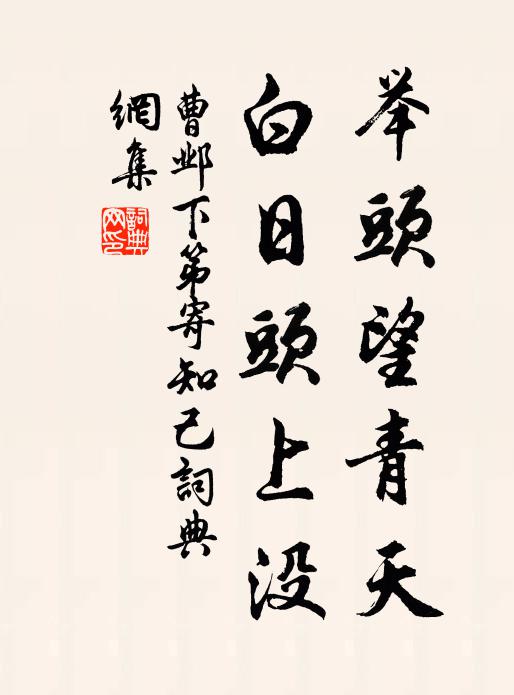 举頭望青天
白日頭上没
曹邺下第寄知己詞典
網集
詞典網印